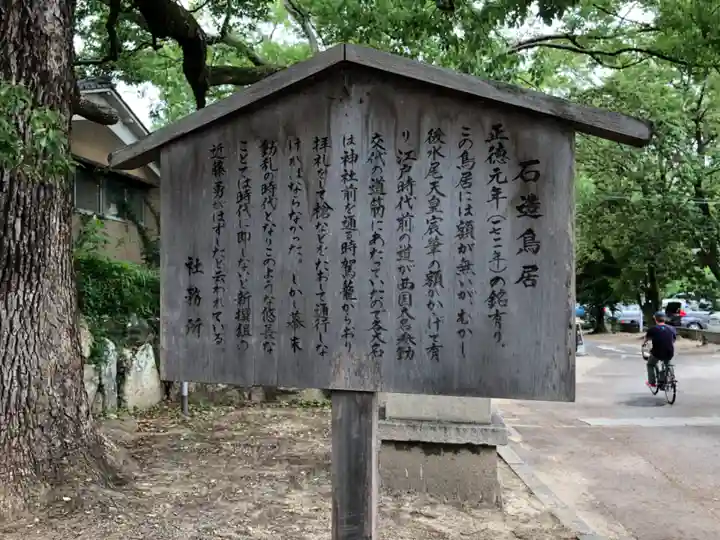 石造鳥居
正徳元年(一七一一年)の銘有り。
この鳥居には額が無いが、むかし
後水尾天皇宸筆の額がかけて有
り、江戸時代前の道が西国大名参勤
交代の道筋にあたっていたので各大名
は神社前を通る時駕籠からおり
拝礼をして槍などをたおして通行しな
ければならなかった。しかし幕末
動乱の時代となりこのような悠長な
ことでは時代に即しないと新撰組の
近藤勇がはずしたと云われている。
社務所